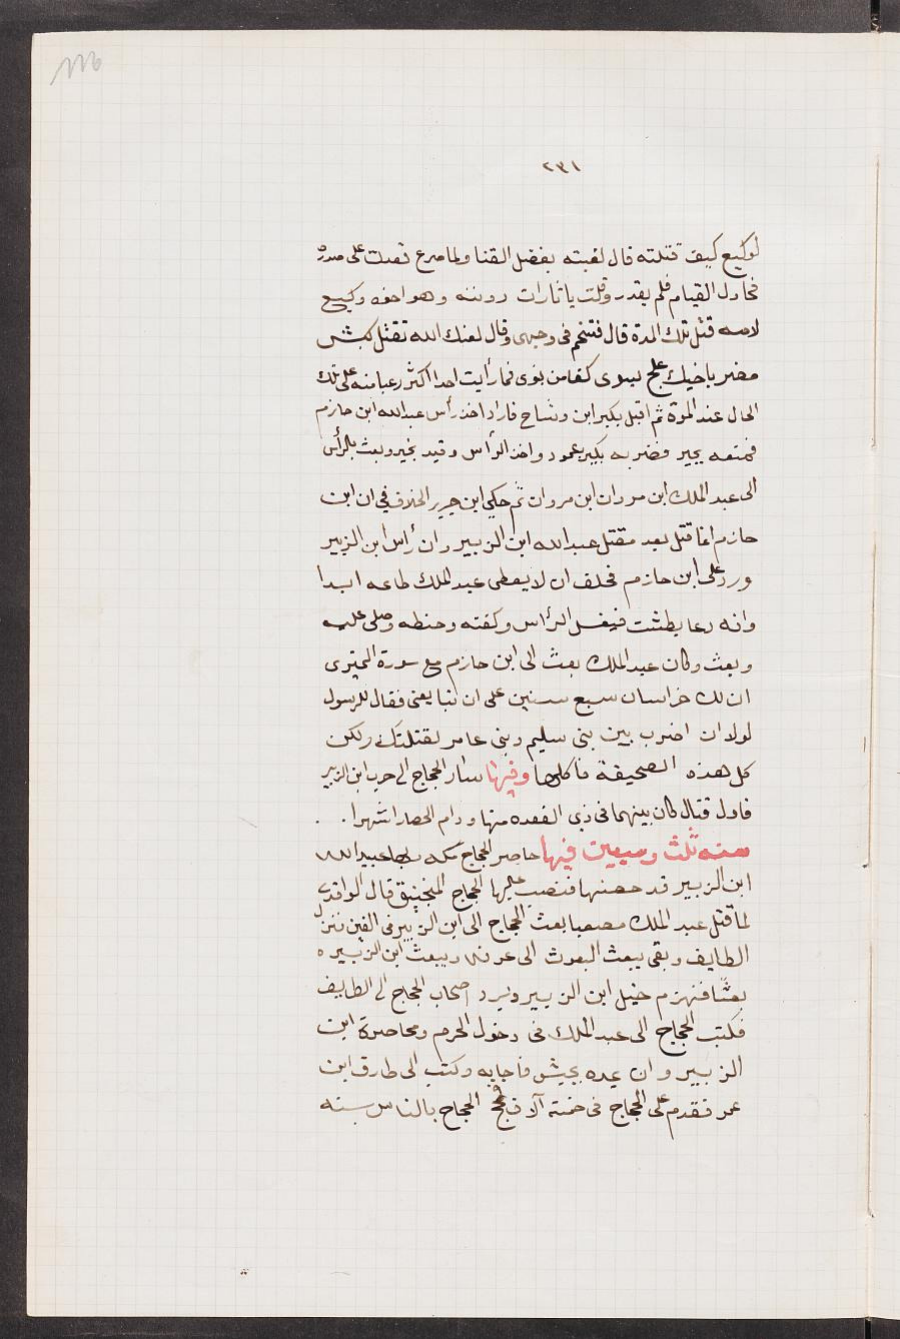 ٢٣١
لوكيع كيف قتلته قال لغبته بفضل القنا ولما صرع قعدت على صدره
فحاول القيام فلم يقدر وقلت يا ثارات دويله وهو اخو وكيع
لامه قتل تلك المدة قال فتنخم فى وجهى وقال لعنك الله تقتل كبش
مضر باخيك علج لا يسوى كفا من نوى فما رأيت احدا اكثر رعبا منه على تلك
الحال عند الموت ثم اقبل بكير ابن وشاح فاراد اخذ رأس عبد الله ابن حازم
فمنعه بحير فضربه بكير بعمود واخذ الرأس وقيد بحير وبعث بالرأس
الى عبد الملك ابن مروان ابن مروان ثم حكى ابن جرير الخلاف فى ان ابن
حازم انما قتل بعد مقتل عبد الله ابن الزبير وان رأس ابن الزبير
ورد على ابن حازم فحلف ان لا يعطى عبد الملك طاعه ابدا
وانه دعا بطشت فيغسل الرأس وكفنه وحنطه وصلى عليه
وبعث وكان عبد الملك بعث الى ابن حازم مع سورة
ان لك خراسان سبع سنين على ان تبايعنى فقال للرسول
لولا ان اضرب بين بنى سليم وبنى عامر لقتلتك ولكن
كل هذه الصحيفة فاكلها وفيها سار الحجاج الى حرب ابن الزبير
فاول قتال كان بينهما فى ذى القعده منها ودام الحصار اشهرا . .
سنه ثلث وسبعين فيها حاصر الحجاج مكه وبها عبد الله
ابن الزبير قد حصنها فنصب عليها الحجاج المنجنيق قال الواقدى
لما قتل عبد الملك مصعبا بعث الحجاج الى ابن الزبير فى الفين فنزل
الطايف وبقى يبعث البعوث الى عرفه ويبعث ابن الزبير ه
بعثا فنهزم خيل ابن الزبير ويرد اصحاب الحجاج الى الطايف
فكتب الحجاج الى عبد الملك فى دخول الحرم ومحاصرة ابن
الزبير وان يمده بجيش فاجابه وكتب الى طارق ابن
عمر فقدم على الحجاج فى خمسة آلاف فحج الحجاج بالناس سنه